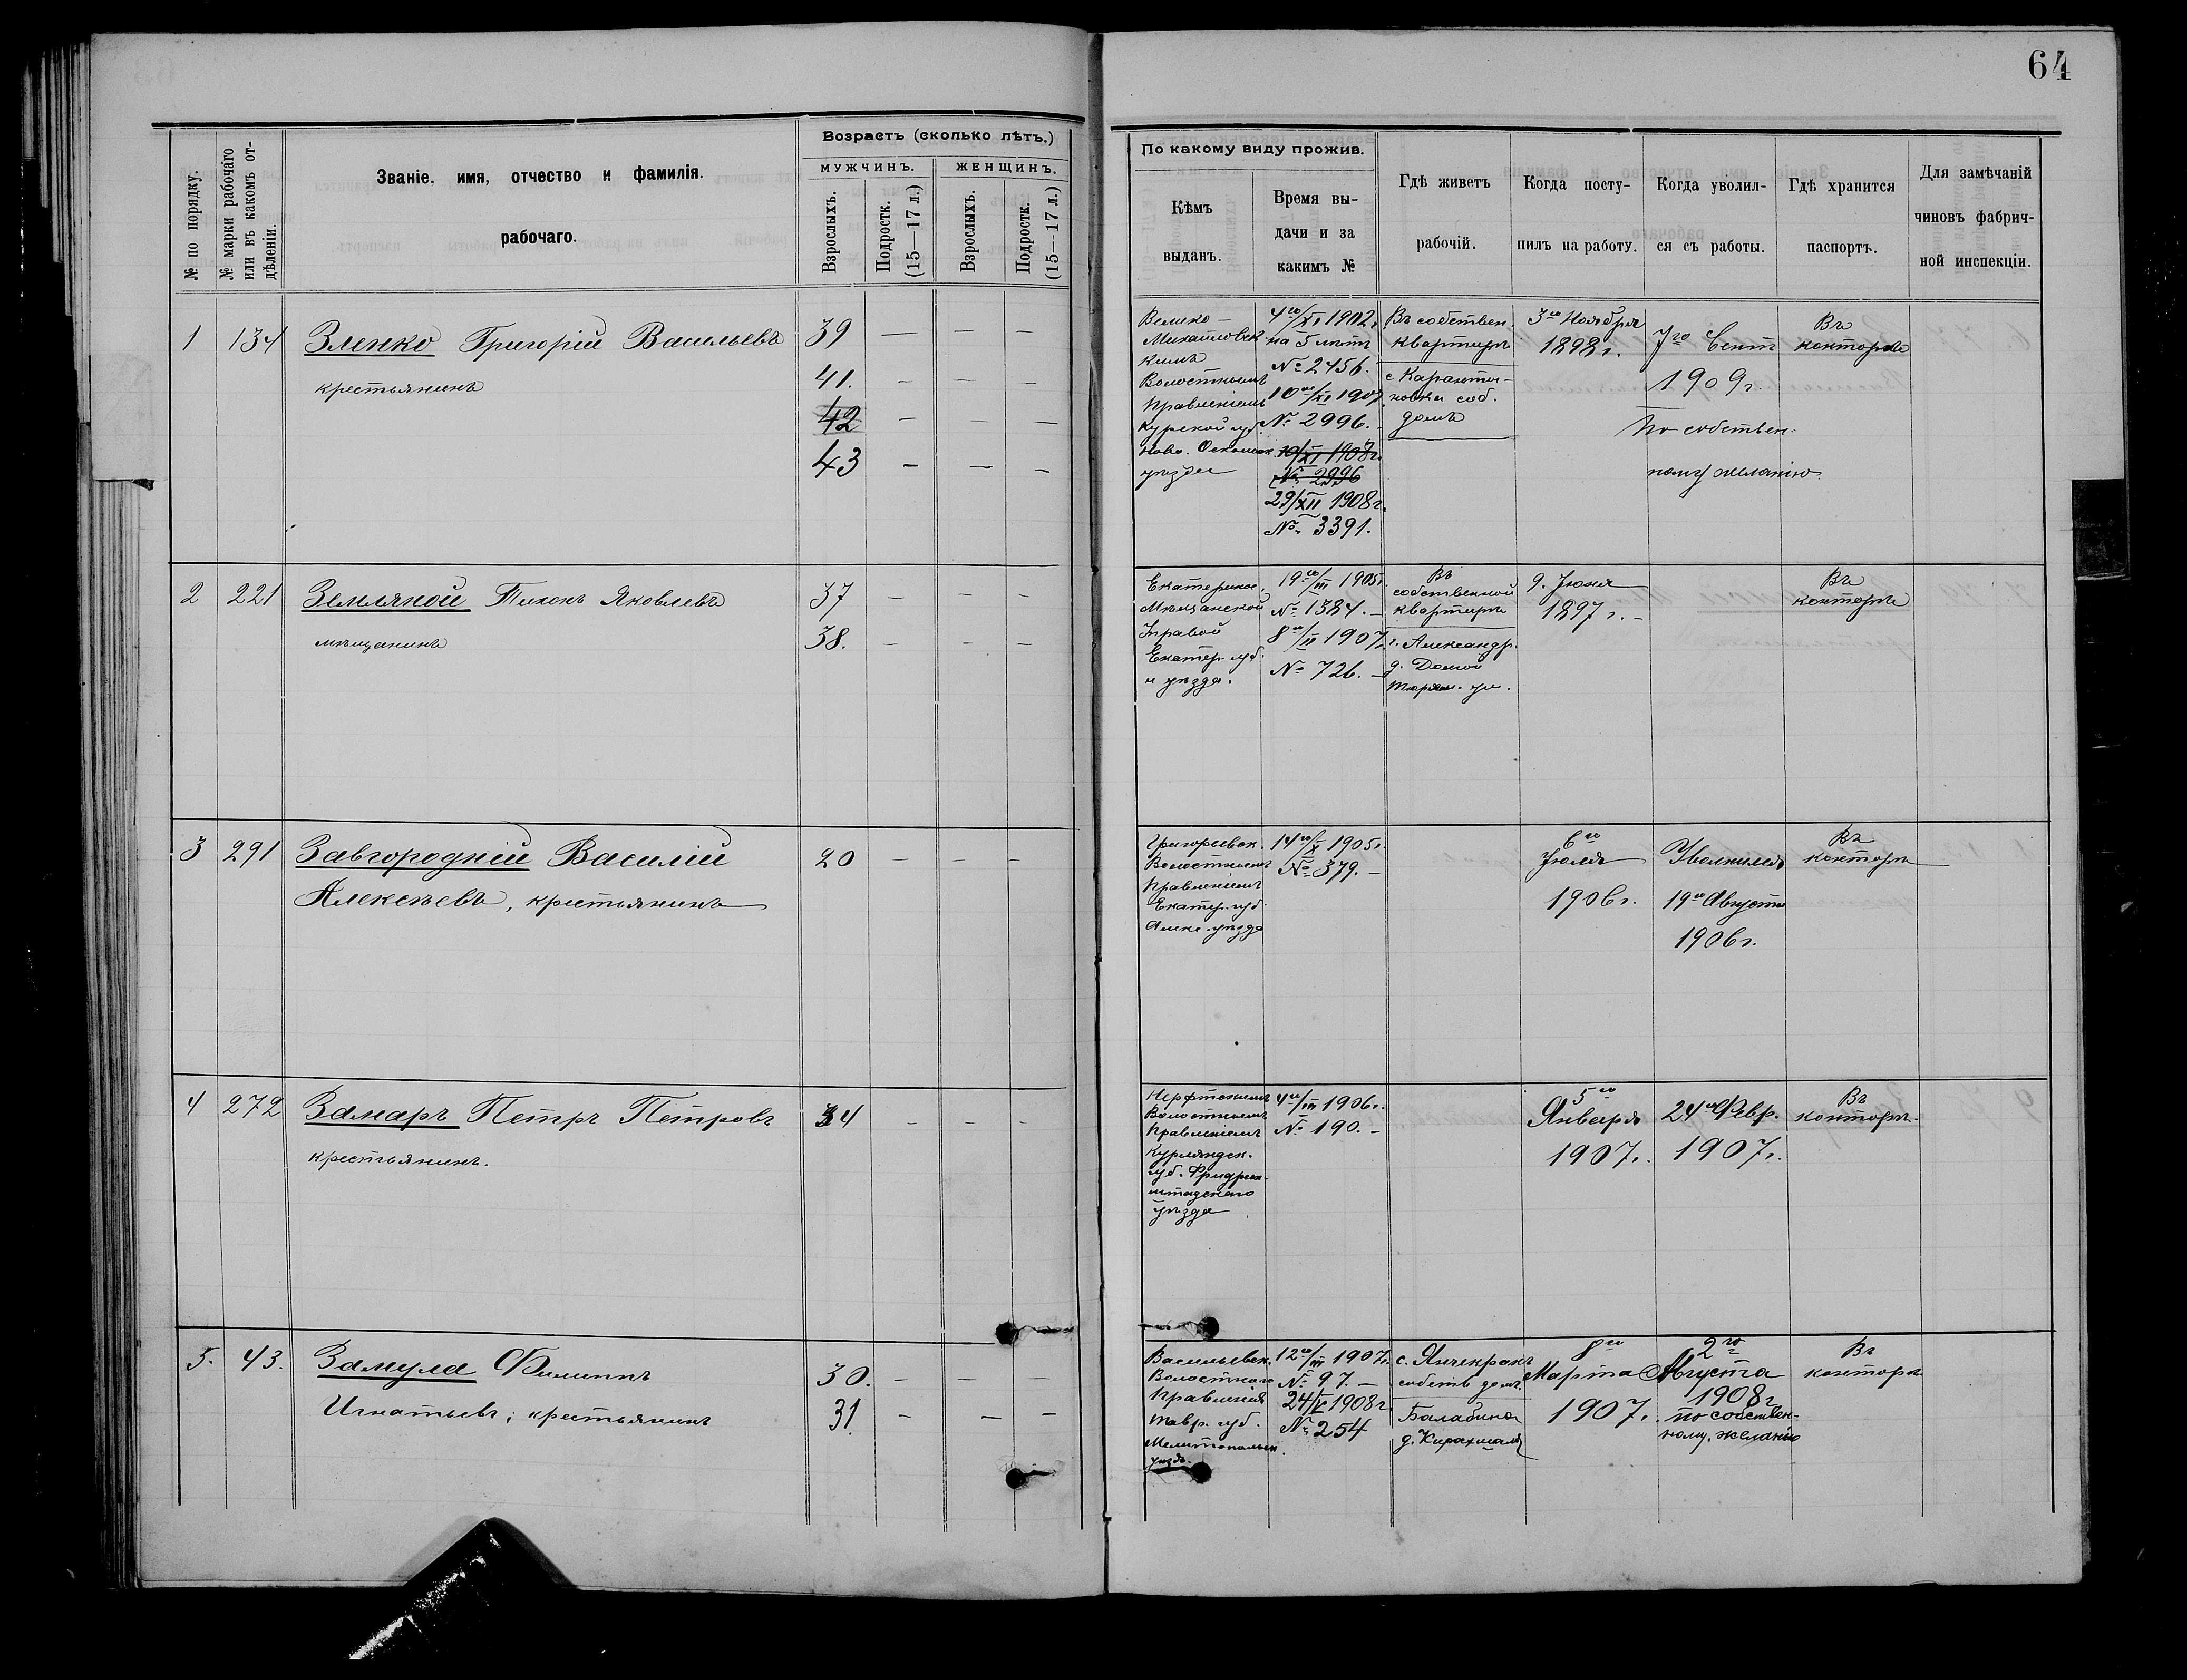 64
Возрастъ (сколько лѣтъ.)
МУЖЧИНЪ.
ЖЕНЩИНЪ.
№ по порядку.
№ марки рабочаго
или въ какомъ от-
дѣленіи.
Званіе, имя, отчество и фамилія.
рабочаго.
Взрослыхъ.
Подростк.
(15—17 л.)
Взрослыхъ.
Подростк.
(15—17 л.)
По какому виду прожив.
Кѣмъ
выданъ.
Время вы-
дачи и за
какимъ №
Гдѣ живетъ
рабочій.
Когда посту-
пилъ на работу.
Когда уволил-
ся съ работы.
Гдѣ хранится
паспортъ.
Для замѣчаній
чиновъ фабрич-
ной инспекціи.
1 134 Зленко Григорій Васильевъ 39 — — —
крестьянинъ 41. — — —
42 — — —
43 — — —
Велико-
Михайловск
кимъ
Волостнымъ
Правленіемъ
Курской губ.
Ново-Оскольск.
уѣзда
4го/XI 1902г.
на 5 лѣтъ
№ 2456.
10го/XI 1907
№ 2996.
10/XI 1908г.
№ 2996
29/XII 1908г.
№ 3391.
Въ собствен.
квартирѣ
с Карантин-
новка соб.
домъ
3го Ноября
1898г.
7го Сент
1909г.
По собствен-
ному желанію
Въ
конторѣ
2 221 Земляной Тихонъ Яковлевъ 37 — — —
мѣщанинъ 38. — — —
Екатеринос.
Мѣщанской
Управой
Екатер. губ.
и уѣзда.
19го/III 1905г.
№ 1384. —
8го/II 1907г.
№ 726. —
Въ
собственной
квартирѣ
г. Александр.
д.
9. Іюня
1897 г. —
Въ
конторѣ
3 291 Завгородній Василій 20 — — —
Алексѣевъ, крестьянинъ
Григорьевск.
Волостнымъ
Правленіемъ
Екатер. губ.
Алекс. уѣзда
14го/X 1905г.
№ 379. —
6го
Іюля
1906г.
Уволился
19го Августа
1906г.
Въ
конторѣ
4 272 Замаръ Петръ Петровъ 34 — — —
крестьянинъ.
Волостнымъ
Правленіемъ
Курляндск.
губ. Фридрих-
штадскаго
уѣзда
4го/III 1906г.
№ 190. —
5го
Января
1907г.
24го Февр.
1907г.
Въ
конторѣ.
5. 43. Замула Филиппъ 30. — — —
Игнатьевъ; крестьянинъ 31. — — —
Васильевск.
Волостного
Правленія
Тавр. губ.
Мелитопольск.
уѣзда.
12го/III 1907г.
№ 97. —
24/V 1908г.
№ 254
с. Янчекракъ
собств домъ.
Балабино
8го
Марта
1907г.
2го
Августа
1908г
по собствен-
ному желанію
Въ
конторѣ